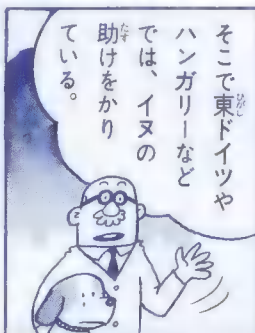 そこで東ドイツや
ハンガリーなど
では、イヌの
助けをかり
ている。